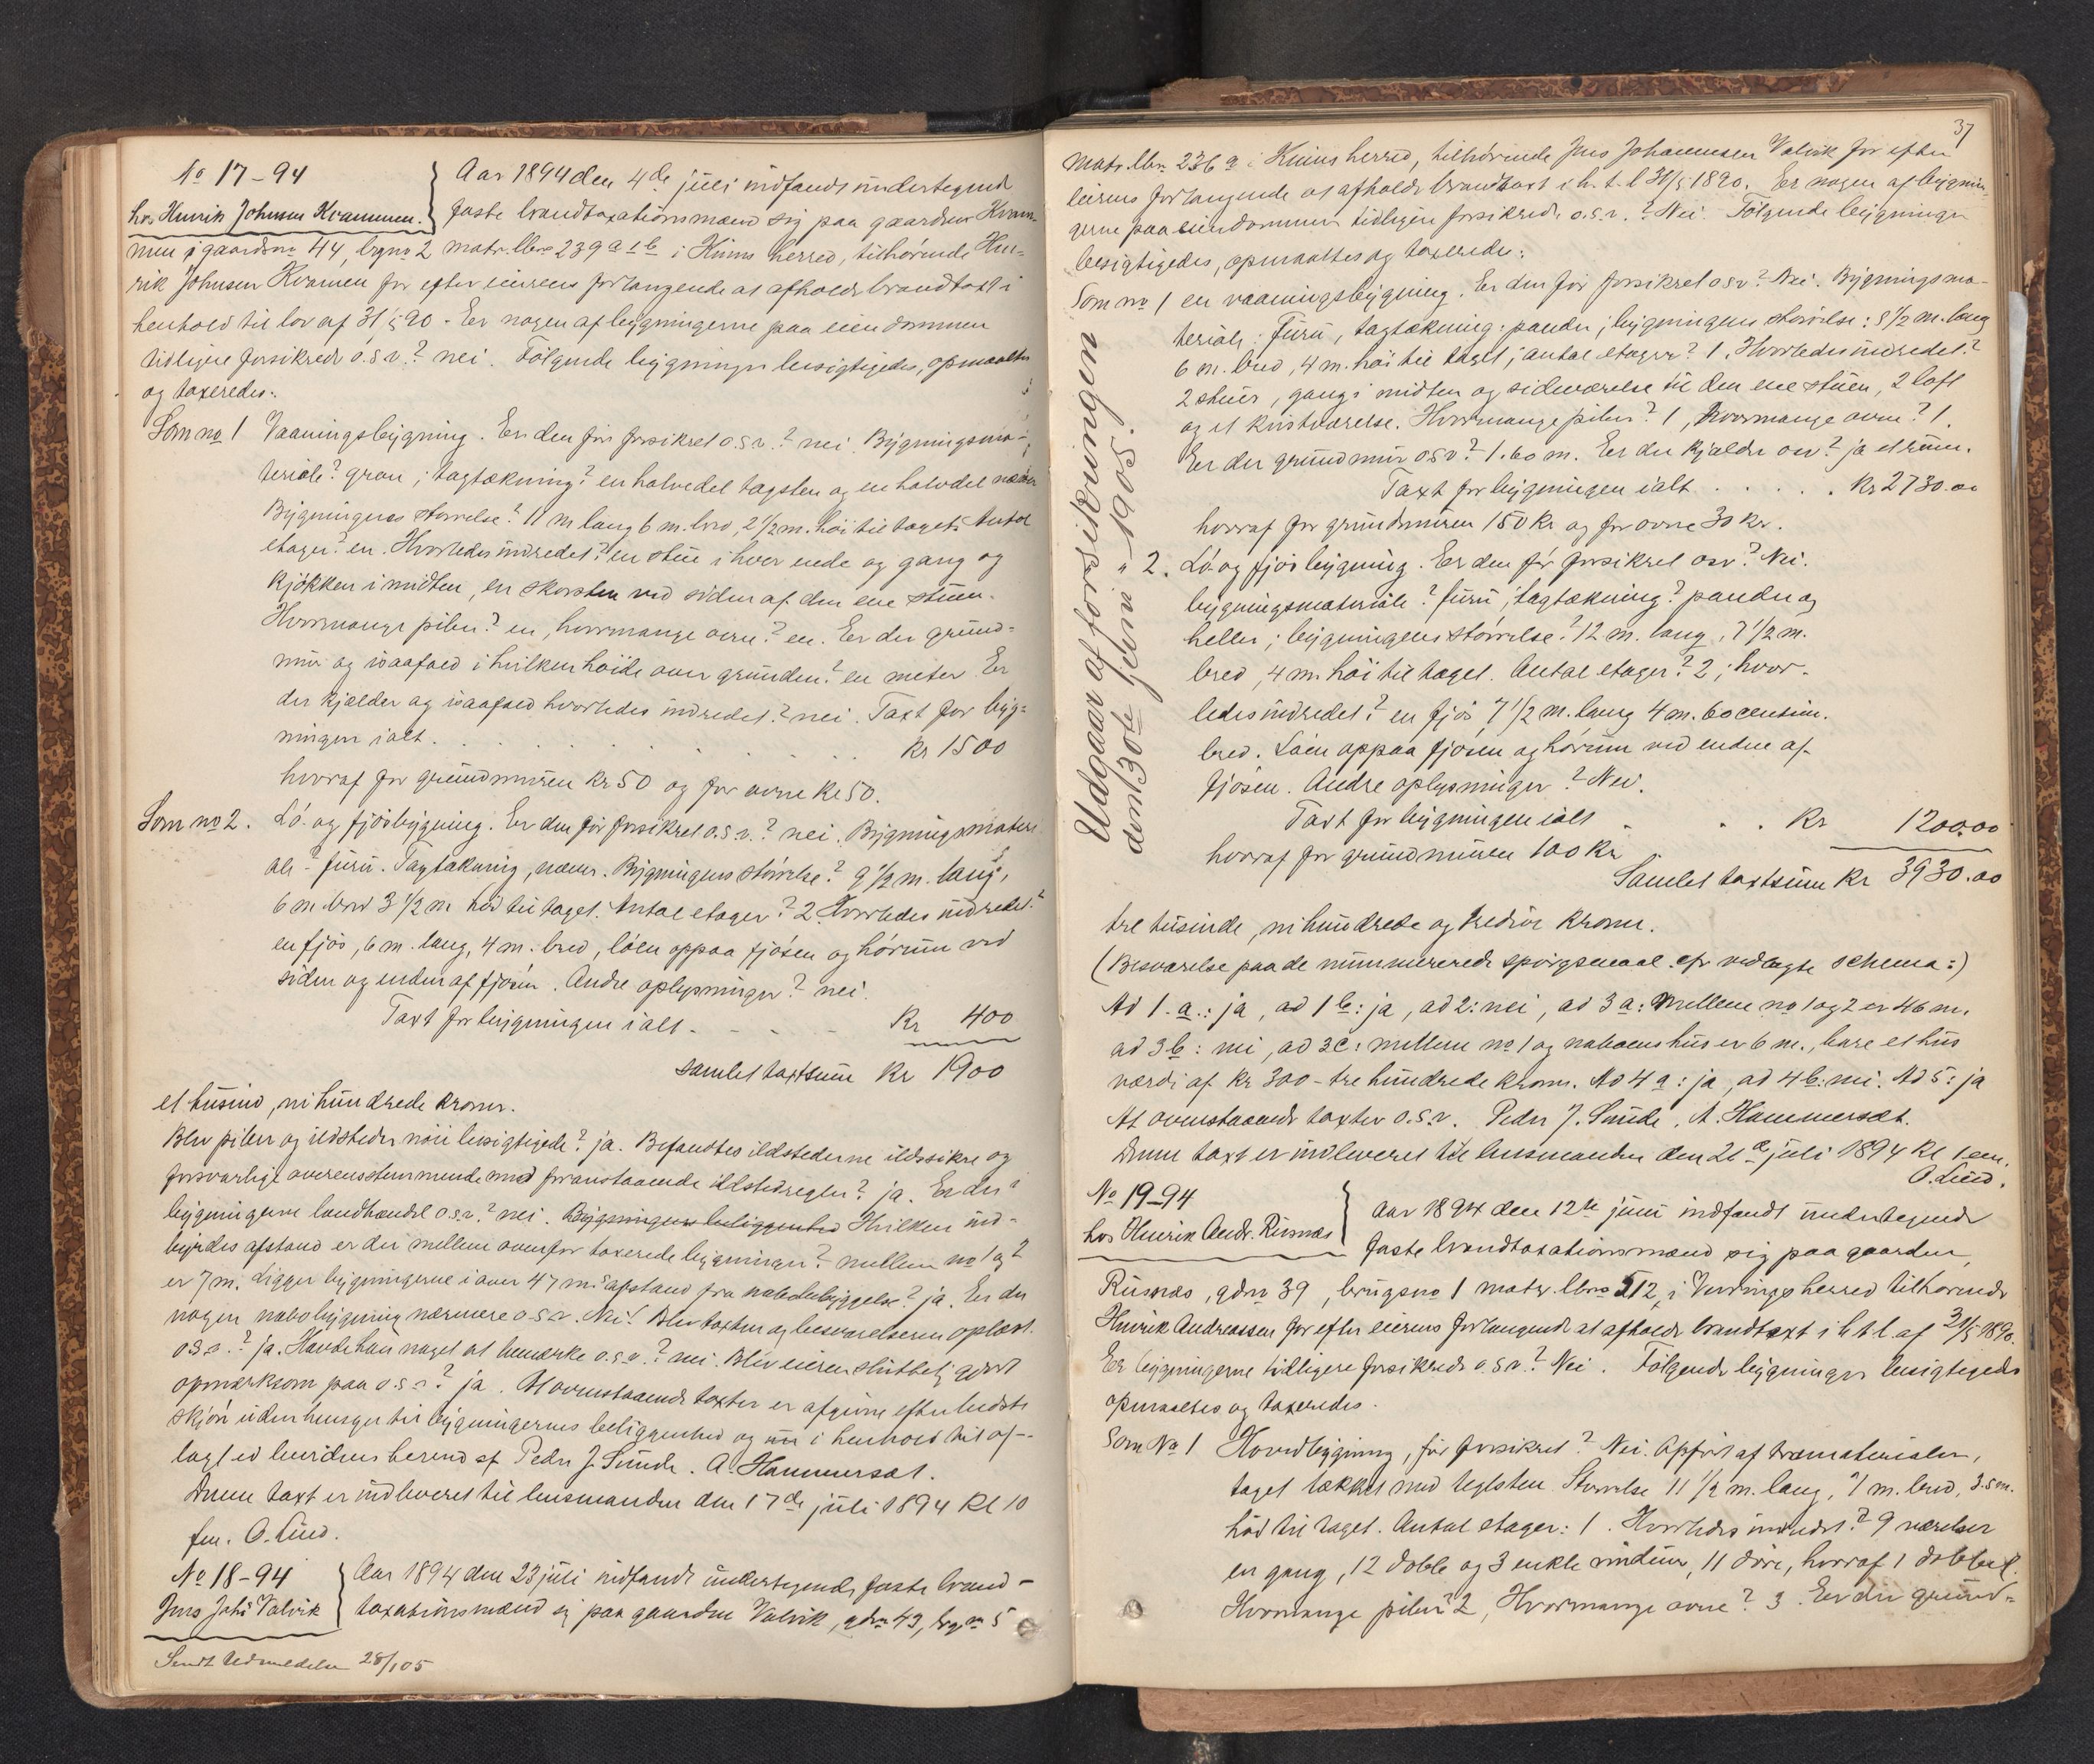 No 17-94
hos Henrik Johnsen Krammen.
Aar 1894 den 4de juli indfandt undertegned
faste brandtaxationsmænd sig paa gaarden Kram-
men gaardsno 44, bgno 2 matr. lbno 239 a & b i Kinns herred, tilhørende Hen-
rik Johnsen Kramen for efter eierens forlangende at afholde brandtaxt i
henhold til lov af 31/5 90 - Er nogen af bygningerne paa eiendommen
tidligere forsikrede o.s.v.? nei. Følgende bygninger besigtigedes, opmaaltes
og taxeredes:
Som no 1 Vaaningsbygning. Er den før forsikret o.s.v.? nei. Bygningsma-
teriale? gran; tagtækning? en halvedel tagsten og en halvdel næver
Bygningens størrelse? 11 m lang 6 m. bred, 2 1/2 m. høi til taget. Antal
etager? en. Hvorledes indredet? en stue i hver ende og gang og
kjøkken i midten, en skorsten ved siden af den ene stuen.
Hvormange piber? en, hvormange ovne? en. Er der grund-
mur og isaafald i hvilken høide over grunden? en meter. Er
der kjælder og isaafald hvorledes indredet? nei. Taxt for byg-
ningen ialt . . . . . . . . . Kr 1500
hvoraf for grundmuren Kr 50 og for ovne Kr 50.
Som no 2. Lø- og fjøsbygning. Er den før forsikret o.s.v.? nei. Bygningsmateri-
ale? furu. Tagtækning, næver. Bygningens størrelse? 9 1/2 m. lang,
6 m bred 3 1/2 m høi til taget. Antal etager? 2. Hvorledes indredet?
en fjøs, 6 m. lang, 4 m. bred, løen oppaa fjøsen og hørum ved
siden og enden af fjøsen. Andre oplysninger? nei.
Taxt for bygningen ialt - - - - Kr 400
samlet taxtsum Kr 1900
et tusind, ni hundrede kroner.
Blev piber og ildsteder nøie besigtigede? ja. Befandtes ildstederne ildssikre og
forsvarlige overensstemmende med foranstaaende ildstedregler? ja. Er der i
bygningerne landhandel o.s.v.? nei. Bygningens beliggenhed Hvilken ind-
byrdes afstand er der mellem ovenfor taxerede bygninger? mellem no 1 og 2
er 7 m. Ligger bygningerne i over 47 m.s afstand fra nabobebyggelse? ja. Er der
nogen nabobygning nærmere o.s.v. Nei! Blev taxten og besvarelserne oplæst
o.s.v.? ja. Havde han noget at bemærke o.s.v.? nei. Blev eieren sluttelig gjort
opmærksom paa o.s.v.? ja. At ovenstaaende taxter er afgivne efter bedste
skjøn uden hensyn til bygningernes beliggenhed og nu i henhold til af-
lagt ed bevidnes herved af Peder J. Sunde. A. Hammersæt.
Denne taxt er indleveret til lensmanden den 17de juli 1894 Kl 10
fm. O. Lind.
No 18-94
Jens Johs Valvik
Aar 1894 den 23 juli indfandt undertegnede faste brand-
taxationsmænd sig paa gaarden Valvik, gdno 43, bgno 5
Sendt Udmeldelse 28/1 05
37
Matr. lbno 236 a i Kinns herred, tilhørende Jens Johannessen Valvik for efter
eierens forlangende at afholde brandtaxt i h. t. l 31/5 1890. Er nogen af bygnin-
gerne paa eiendommen tidligere forsikrede o.s.v.? Nei. Følgende bygninger
besigtigedes, opmaaltes og taxeredes:
Som no 1 en vaaningsbygning. Er den før forsikret osv? Nei. Bygningsma-
teriale: Furu, tagtækning: pander; bygningens størrelse: 8 1/2 m. lang
6 m. bred, 4 m. høi til taget; antal etager? 1. Hvorledes indredet?
2 stuer, gang i midten og sideværelse til den ene stuen, 2 loft
og et kvistværelse. Hvormange piber? 1, hvormange ovne? 1.
Er der grundmur osv? 1.60 m. Er der kjælder osv? ja et rum.
Taxt for bygningen ialt . . . . . Kr 2730.00
hvoraf for grundmuren 150 Kr og for ovne 30 Kr.
" 2. Lø- og fjøsbygning. Er den før forsikret osv? Nei.
bygningsmateriale? furu; tagtækning? pander og
heller; bygningens størrelse? 12 m. lang, 7 1/2 m.
bred, 4 m. høi til taget. Antal etager? 2; hvor-
ledes indredet? en fjøs 7 1/2 m. lang 4 m. 60 centim.
bred. Løen oppaa fjøsen og hørum ved enden af
fjøsen. Andre oplysninger? Nei.
Taxt for bygningen ialt . . . Kr 1200.00
hvoraf for grundmuren 100 Kr
Samlet taxtsum Kr 3930.00
Udgaar af forsikringen
den 30te 1905.
tre tusinde, ni hundrede og tredive kroner.
(Besvarelse paa de nummererede spørgsmaal efr vedlagte schema:)
Ad 1. a.: ja, ad 1 b: ja, ad 2: nei, ad 3 a: Mellem no 1 og 2 er 46 m.
ad 3 b: nei, ad 3 c: mellem no 1 og naboens hus er 6 m., bare et hus
værdi af Kr 300 - tre hundrede kroner. Ad 4 a: ja, ad 4 b: nei. Ad 5: ja
At ovenstaaende taxter o.s.v. Peder J. Sunde, A. Hammersæt.
Denne taxt er indleveret til lensmanden den 21de juli 1894 Kl 1 em.
O. Lind.
No 19-94
hos Henrik Andr. Risnæs
Aar 1894 den 12te juni indfandt undertegnede
faste brandtaxationsmænd sig paa gaarden
Risnæs, gdno 39, brugsno 1 matr. lbno 512, i herred tilhørende
Henrik Andreassen for efter eierens forlangende at afholde brandtaxt i h t l. af 31/5 1890.
Er bygningerne tidligere forsikrede o.s.v.? Nei. Følgende bygninger besigtigedes
opmaaltes og taxeredes.
Som No 1 Hovedbygning, før forsikret? Nei. Opført af træmaterialer,
taget tækket med teglsten. Størrelse 11 1/2 m. lang, 7 m. bred, 3.5 m.
høi til taget. Antal etager: 1. Hvorledes indredet? 9 værelser
en gang, 12 doble og 3 enkle vinduer, 11 døre, hvoraf 1 dobbel.
Hvormange piber? 2, Hvormange ovne? 3. Er der grund-